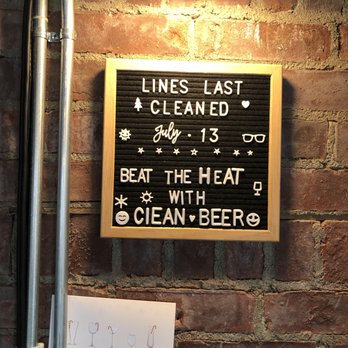 LINES LAST
CLEANED
July • 13
BEAT THE HEAT
WITH
CLEAN ♥ BEER